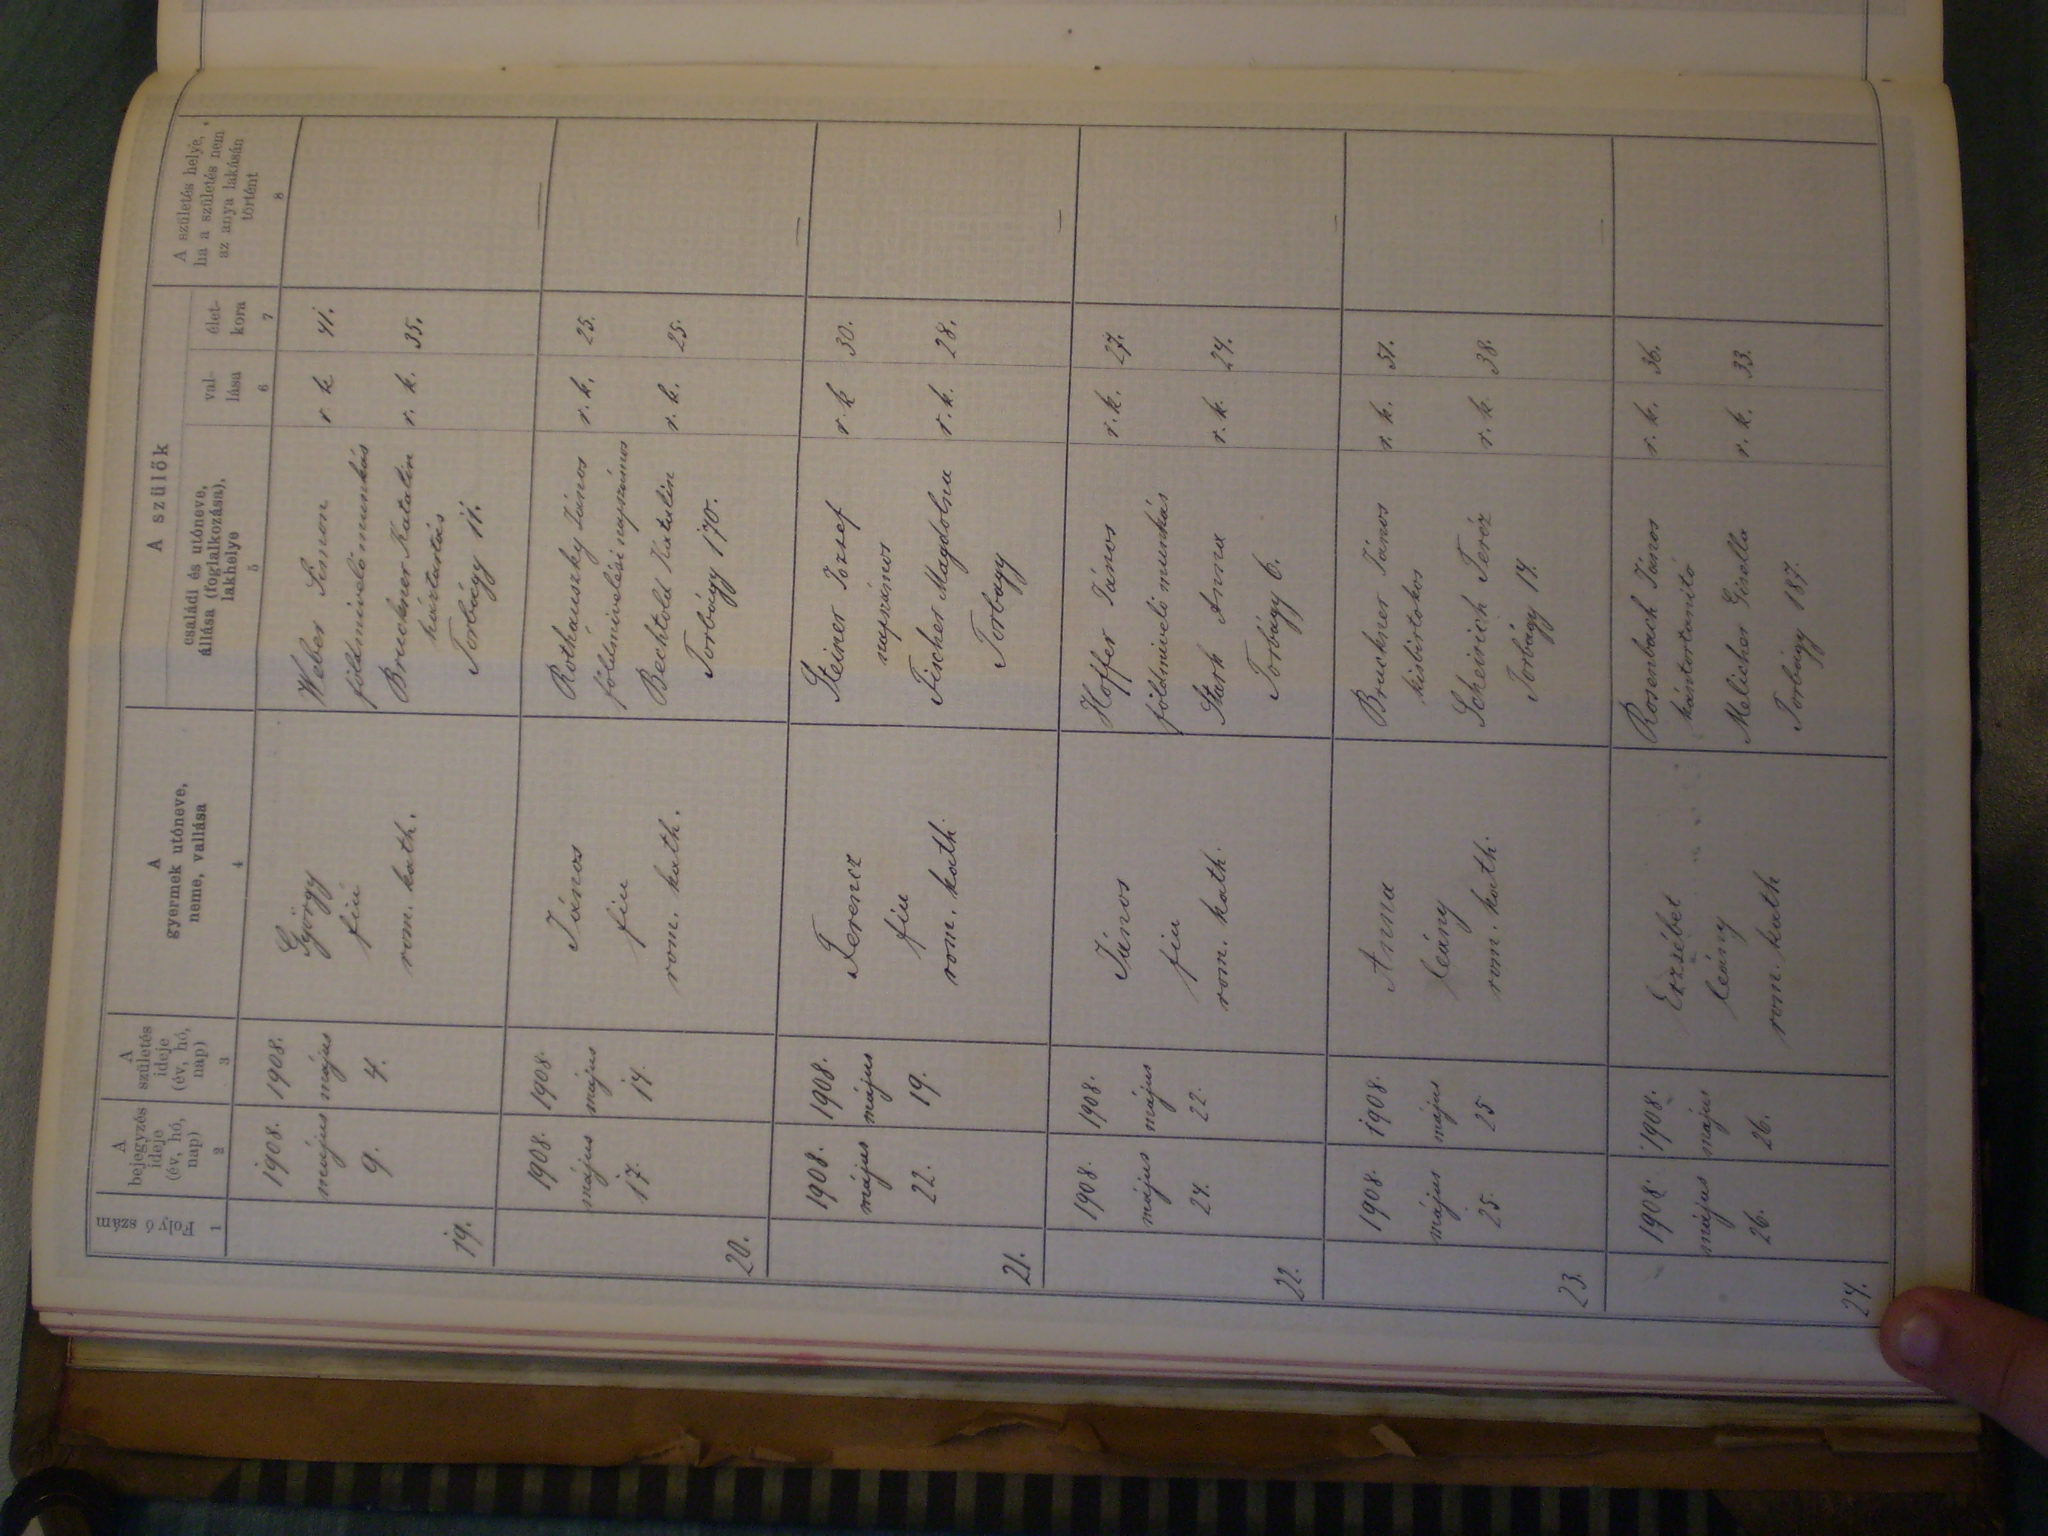 Folyó szám
1
A
bejegyzés
ideje
(év, hó,
nap)
2
A
születés
ideje
(év, hó,
nap)
3
A
gyermek utóneve,
neme, vallása
4
A szülők
családi és utóneve,
állása (foglalkozása),
lakhelye
5
val-
lása
6
élet-
kora
7
A születés helye,
ha a születés nem
az anya lakásán
történt
8
19.
1908.
május
9.
1908.
május
4.
György
fiu
rom. kath.
Weber Simon
földmivelő munkás
Bruckner Katalin
háztartás
Torbágy 11.
r. k
41.
r. k.
35.
20.
1908.
május
17.
1908.
május
14.
János
fiu
rom. kath.
Rothauszky János
földmivelési napszámos
Bechtold Katalin
Torbágy 170.
r. k.
25.
r. k.
25.
21.
1908.
május
22.
1908.
május
19.
Ferencz
fiu
rom. kath.
Steiner József
napszámos
Fischer Magdolna
Torbágy
r. k
30.
r. k.
28.
22.
1908.
május
24.
1908.
május
22.
János
fiu
rom. kath.
Hoffer János
földmivelő munkás
Stark Anna
Torbágy 6.
r. k.
27.
r. k.
24.
23.
1908.
május
25.
1908.
május
25
Anna
leány
rom. kath.
Bruckner János
kisbirtokos
Scheirich Teréz
Torbágy 17.
r. k.
r. k.
38.
24.
1908.
május
26.
1908.
május
26.
Erzsébet
leány
rom. kath
Rosenbach János
kántortanitó
Melicher Gisella
Torbágy 187.
r. k.
36.
r. k.
33.